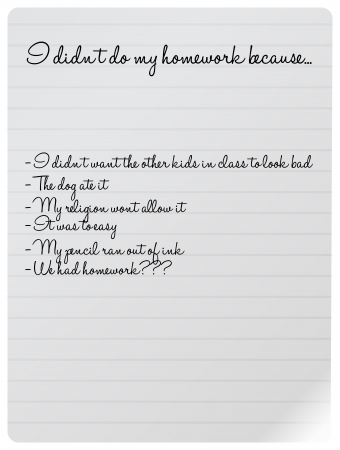 I didn't do my homework because...
- I didn't want the other kids in class to look bad
- The dog ate it
- My religion wont allow it
- It was to easy
- My pencil ran out of ink
- We had homework???